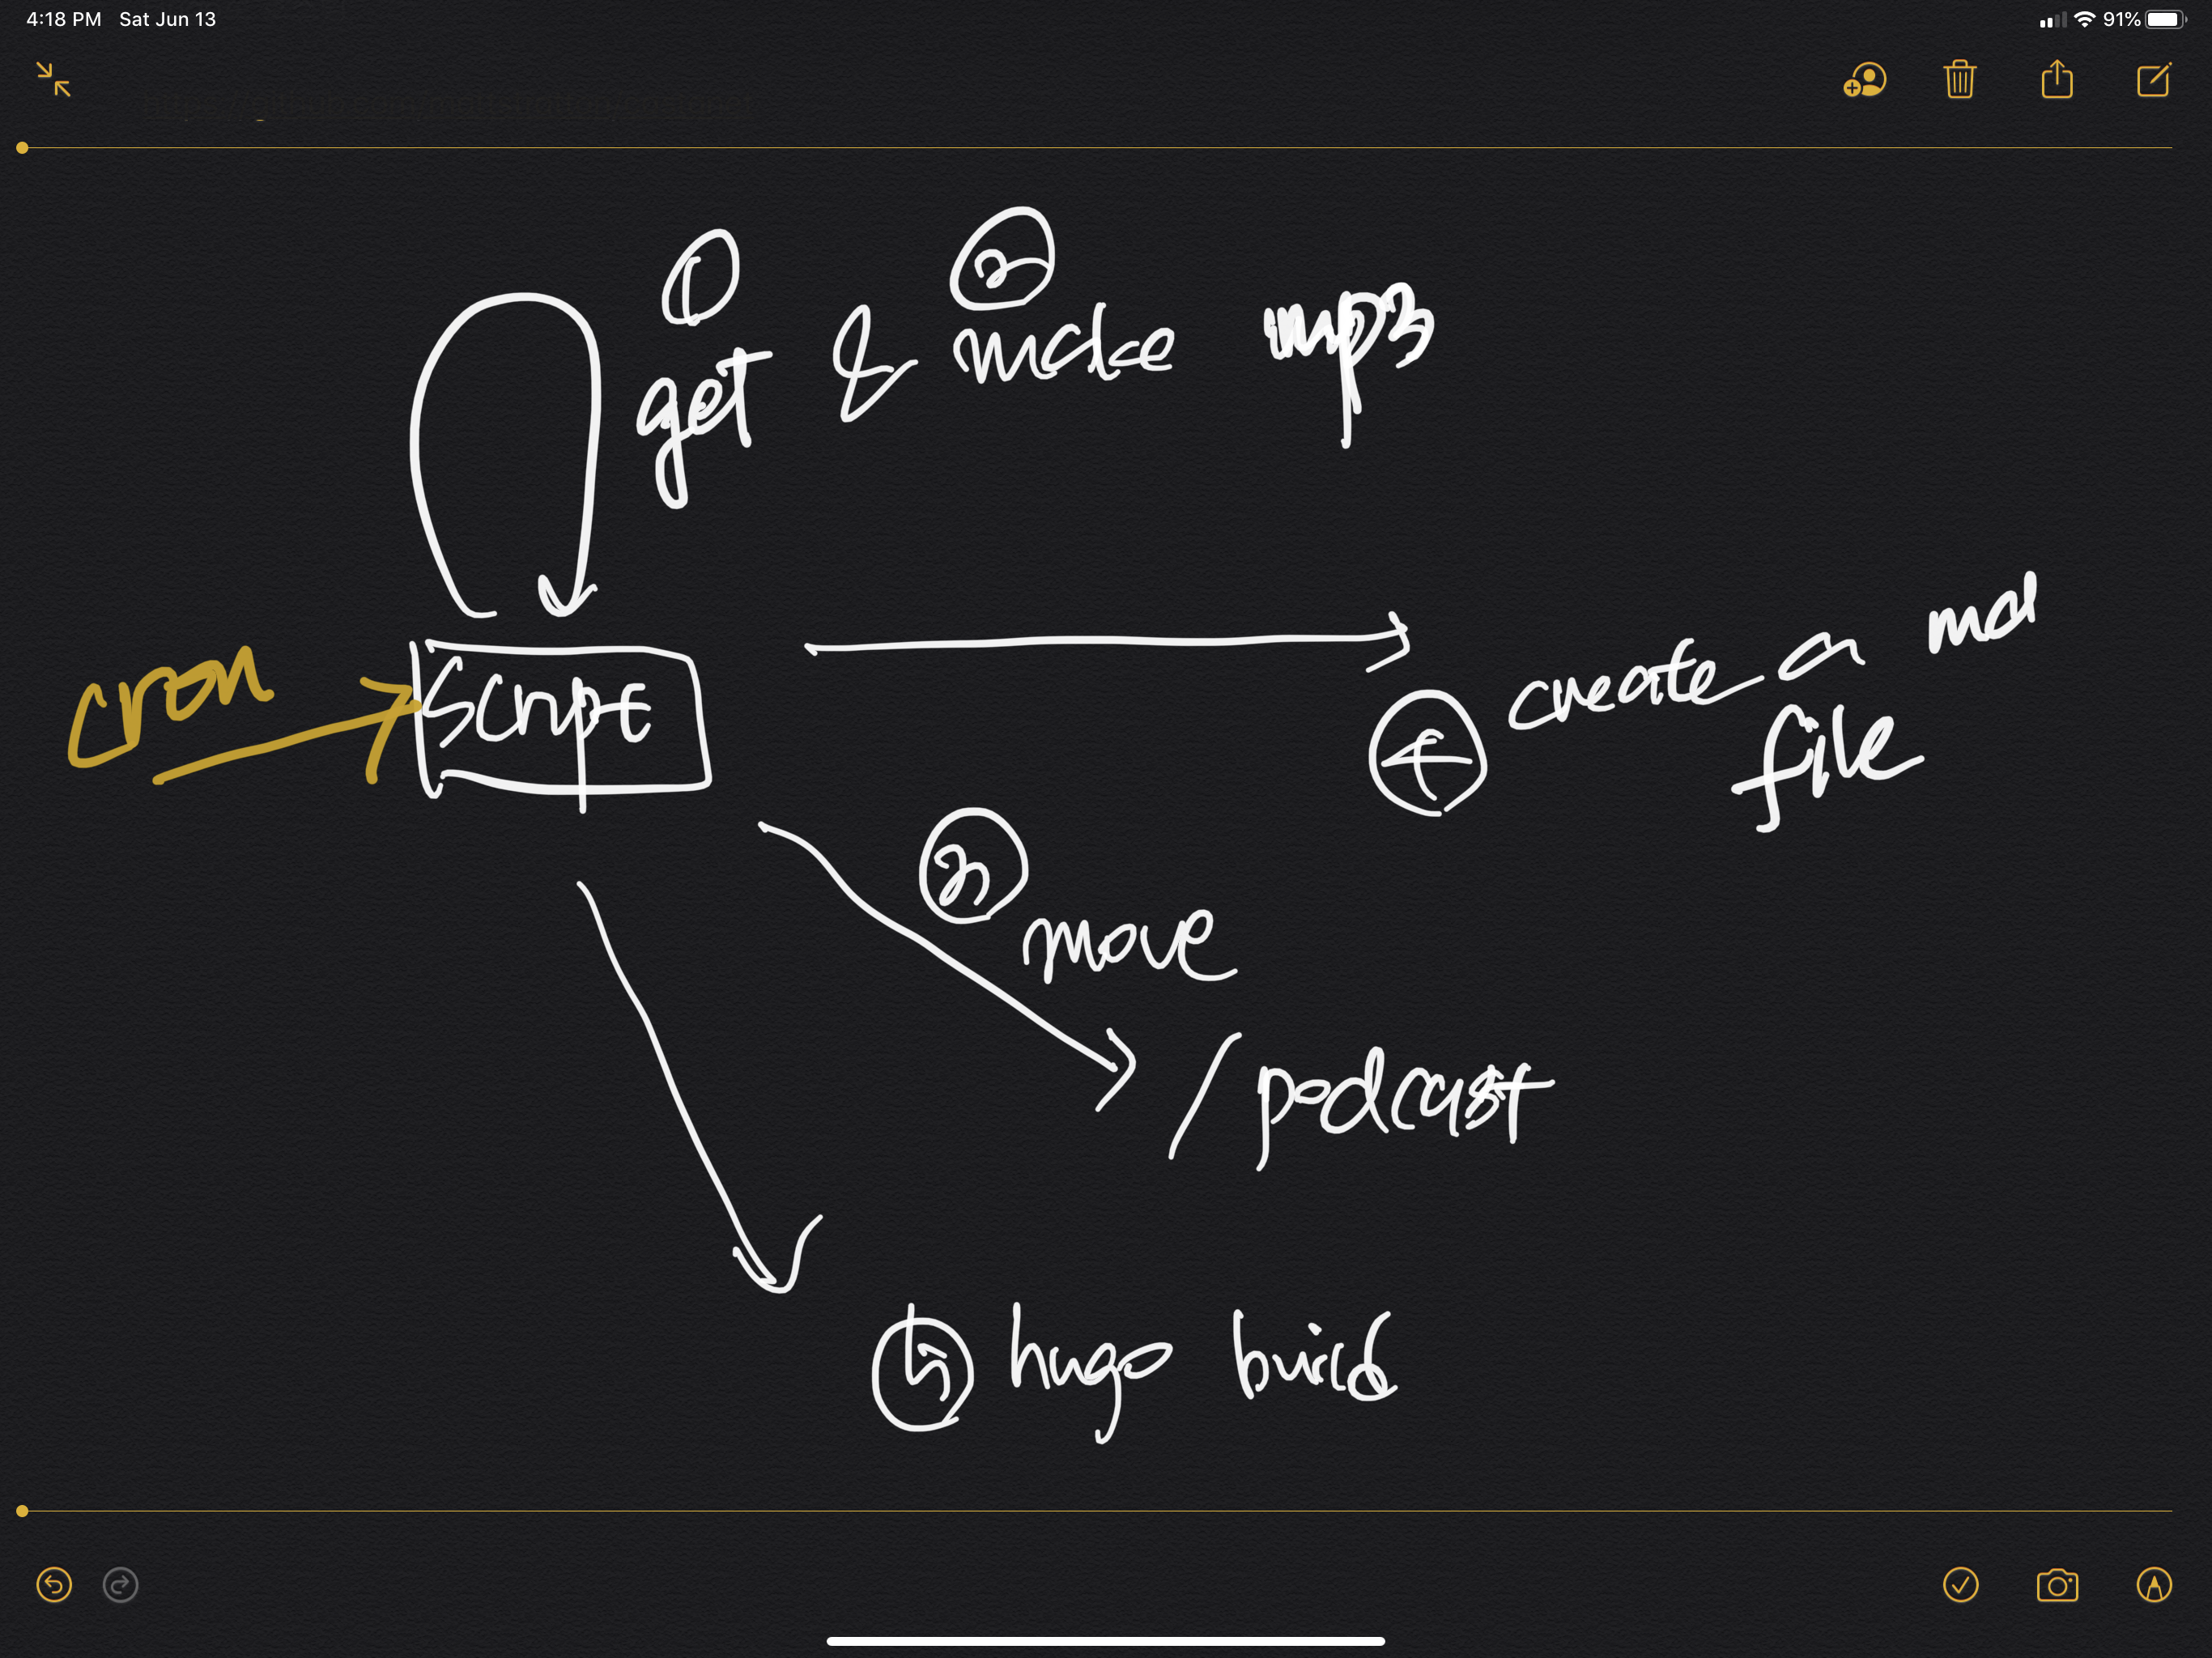 4:18 PM Sat Jun 13
91%
1 2
get & make mp3
cron
script
create a md
4
file
3
move
/podcast
5 hugo build